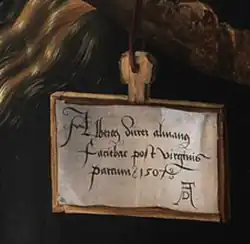 Albertus durer almang
faciebat post virginis
partum 1507
AD